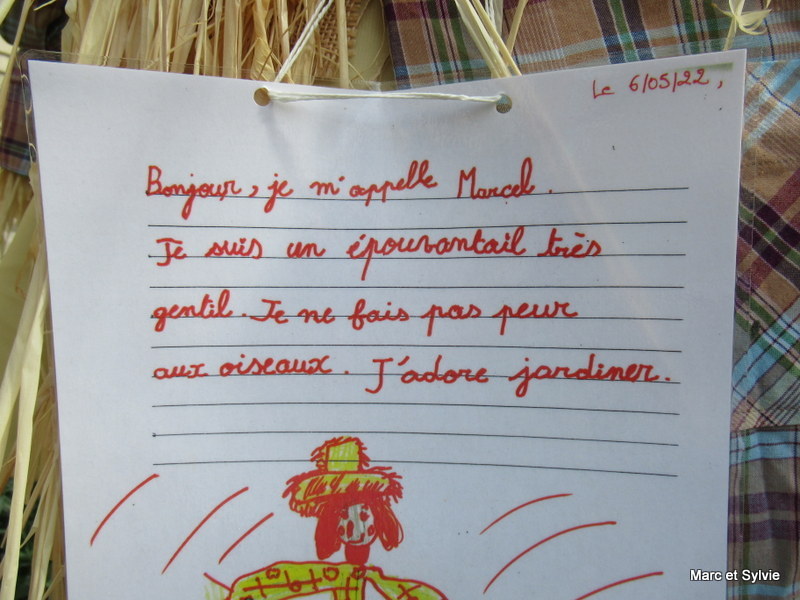 Le 6/05/22,
Bonjour, je m'appelle Marcel.
Je suis un épouvantail très
gentil. Je ne fais pas peur
aux oiseaux. J'adore jardiner.
Marc et Sylvie